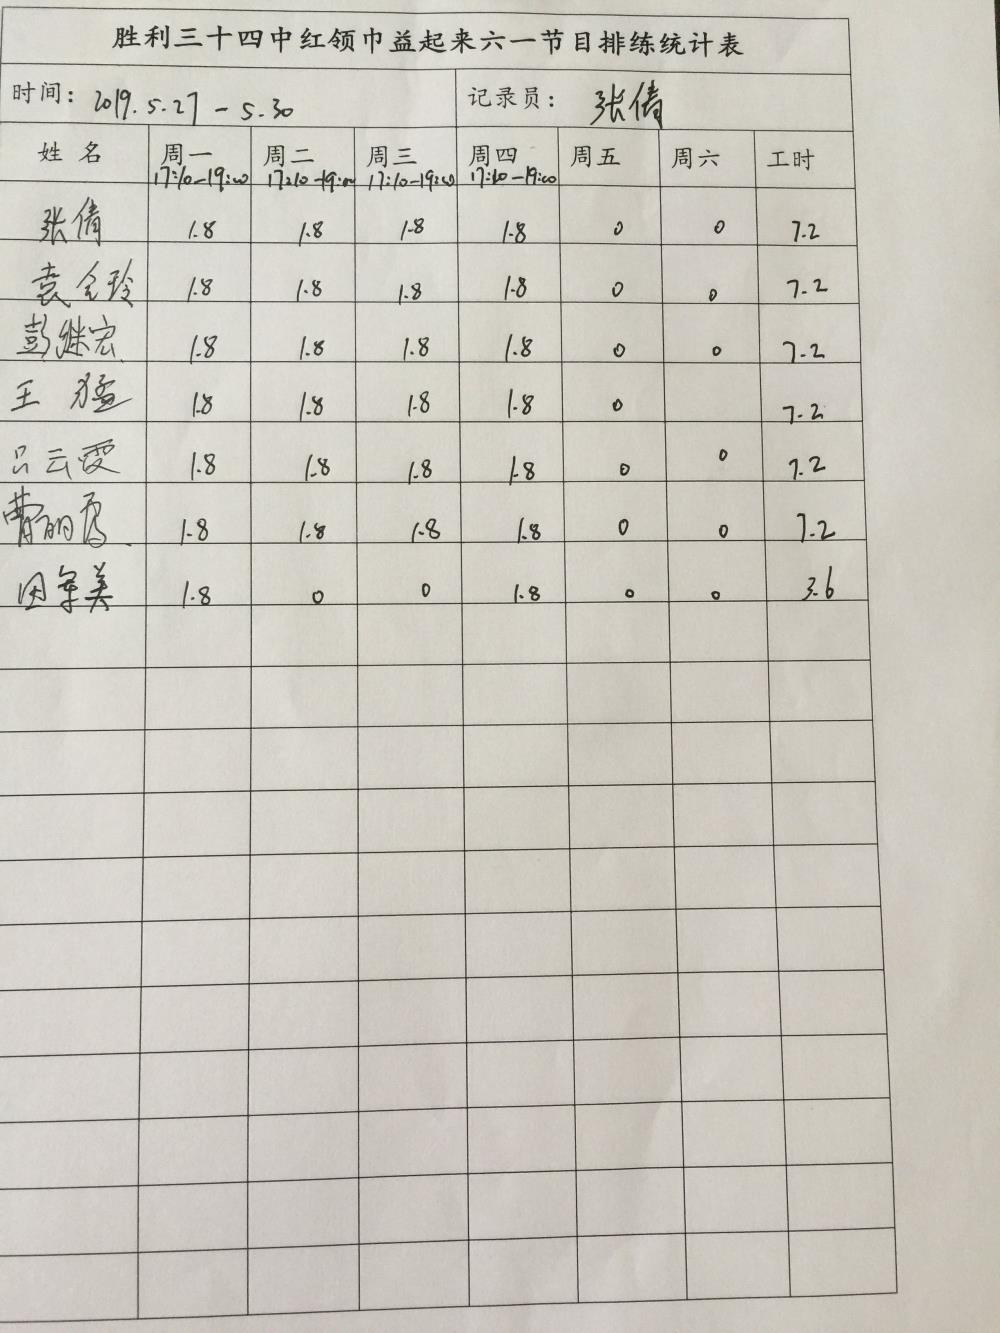 胜利三十四中红领巾益起来六一节目排练统计表
时间： 2019.5.27 - 5.30 记录员： 张倩
姓 名 周一 周二 周三 周四 周五 周六 工时
17:10-19:00 17:10-19:00 17:10-19:00 17:10-19:00
张倩 1.8 1.8 1.8 1.8 0 0 7.2
袁全玲 1.8 1.8 1.8 1.8 0 0 7.2
彭继宏 1.8 1.8 1.8 1.8 0 0 7.2
王 猛 1.8 1.8 1.8 1.8 0 7.2
吕云霞 1.8 1.8 1.8 1.8 0 0 7.2
曹丽 1.8 1.8 1.8 1.8 0 0 7.2
田军美 1.8 0 0 1.8 0 0 3.6